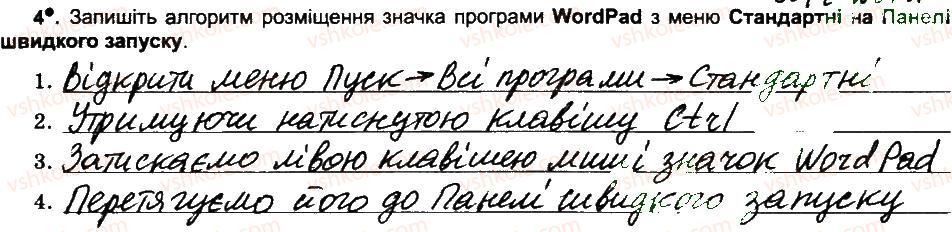 4. Запишіть алгоритм розміщення значка програми WordPad з меню Стандартні на Панелі
швидкого запуску.
1. Відкрити меню Пуск→Всі програми→Стандартні
2. Утримуючи натиснутою клавішу Ctrl
3. Затискаємо лівою клавішею миші значок WordPad
4. Перетягуємо його до Панелі швидкого запуску